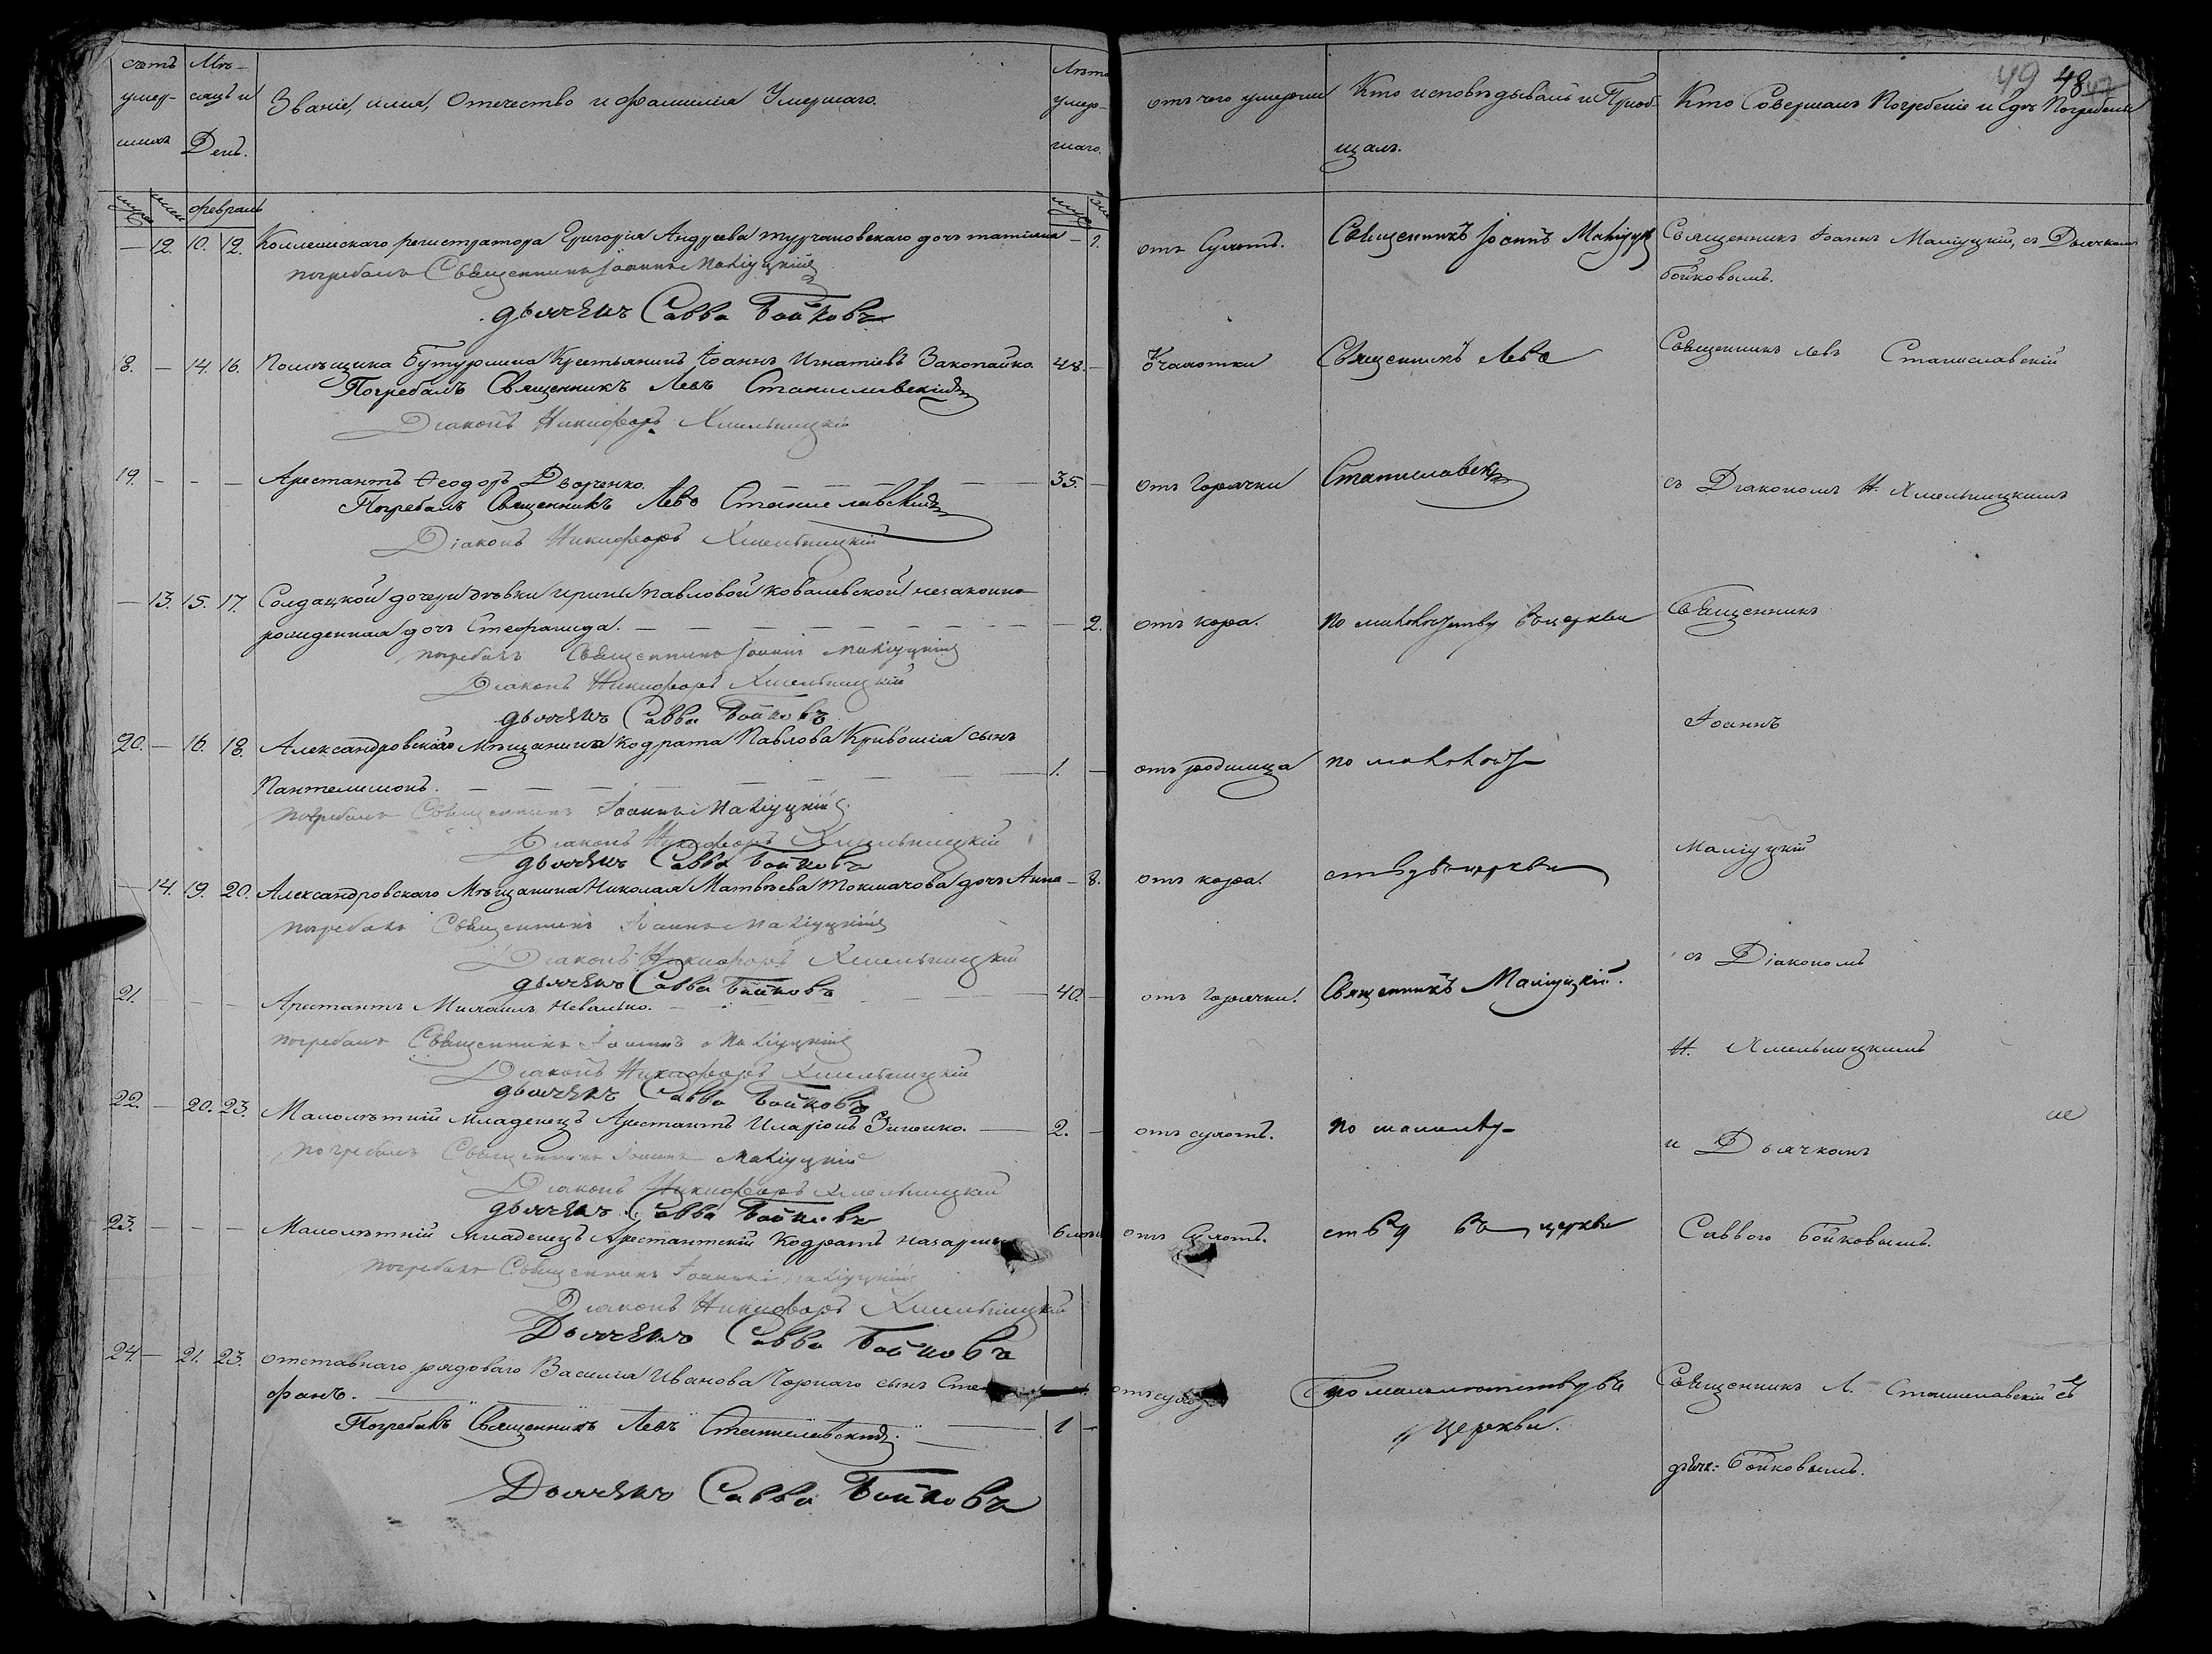 счетъ умер- шихъ
Мѣ- сяцъ и День.
Званіе, имя, Отечество и фамилія Умершаго.
Лѣта умер- шаго.
отъ чего умерши
Кто исповѣдывалъ и Пріоб- щалъ.
Кто Совершалъ Погребеніе и Гдѣ Погребены
49 48
февраль
— 12. 10. 12. Коллежскаго регистратора Григорія Андреева Турчановскаго дочь татіана — 1. отъ Сухотъ. Священникъ Іоаннъ Священникъ Іоаннъ Маліуцкій, съ Дьячкомъ
бойковымъ.
погребалъ Священникъ Іоаннъ Маліуцкій
дьячекъ Савва Бойковъ
18. — 14. 16. Помѣщика Бутурлина Крестьянинъ Іоаннъ Игнатіевъ Закопайко. 48. — Чахотки Священникъ Левъ Священникъ левъ Станиславскій
Погребалъ Священникъ Левъ Станиславскій
Діаконъ Никифоръ Хмельницкій
19. — — — Арестантъ Ѳеодоръ Дворченко. — 35. — отъ Горячки Станиславск съ Діакономъ Н. Хмельницкимъ
Погребалъ Священникъ Левъ Станиславскій
Діаконъ Никифоръ Хмельницкій
— 13. 15. 17. Солдацкой дочери дѣвки ирины Павловой Ковалевской незаконно
рожденная дочь Стефанида. — 2. отъ кора. по въ церкви Священникъ
погребалъ Священникъ Іоаннъ Маліуцкій
Діаконъ Никифоръ Хмельницкій
дьячекъ Савва Бойковъ
Іоаннъ
20. — 16. 18. Александровскаго Мѣщанина Кодрата Павлова Кривошія сынъ
Пантелимонъ. — 1. — отъ родимца по
погребалъ Священникъ Іоаннъ Маліуцкій
Діаконъ Никифоръ Хмельницкій
дьячекъ Савва Бойковъ
Маліуцкій
— 14. 19. 20. Александровскаго Мѣщанина Николая Матвѣева Токмачова дочь Анна — 8. отъ кора.
погребалъ Священникъ Іоаннъ Маліуцкій
Діаконъ Никифоръ Хмельницкій
дьячекъ Савва Бойковъ
съ Діакономъ
21. — — — Арестантъ Михаилъ Невалько. — 40. — отъ Горячки. Священникъ Маліуцкій.
погребалъ Священникъ Іоаннъ Маліуцкій
Діаконъ Никифоръ Хмельницкій
дьячекъ Савва Бойковъ
Н. Хмельницкимъ
22. — 20. 23. Малолѣтній младенецъ Арестантъ Иларіонъ Зиненко. — 2. — отъ сухотъ. по и Дьячкомъ
погребалъ Священникъ Іоаннъ Маліуцкій
Діаконъ Никифоръ Хмельницкій
дьячекъ Савва Бойковъ
23. — — — Малолѣтній младенецъ Арестантскій Кодратъ 6 отъ Сухотъ. ству въ церкви Саввою Бойковымъ.
погребалъ Священникъ Іоаннъ Маліуцкій
Діаконъ Никифоръ Хмельницкій
Дьячекъ Савва Бойковъ
24. — 21. 23. отставнаго рядоваго Василія Иванова Чорнаго сынъ Сте
фанъ. — 1 — по малолѣтству въ
церкви.
Священникъ Л. Станиславскій съ
дьяч: Бойковымъ.
Погребалъ Священникъ Левъ Станиславскій.
Дьячекъ Савва Бойковъ